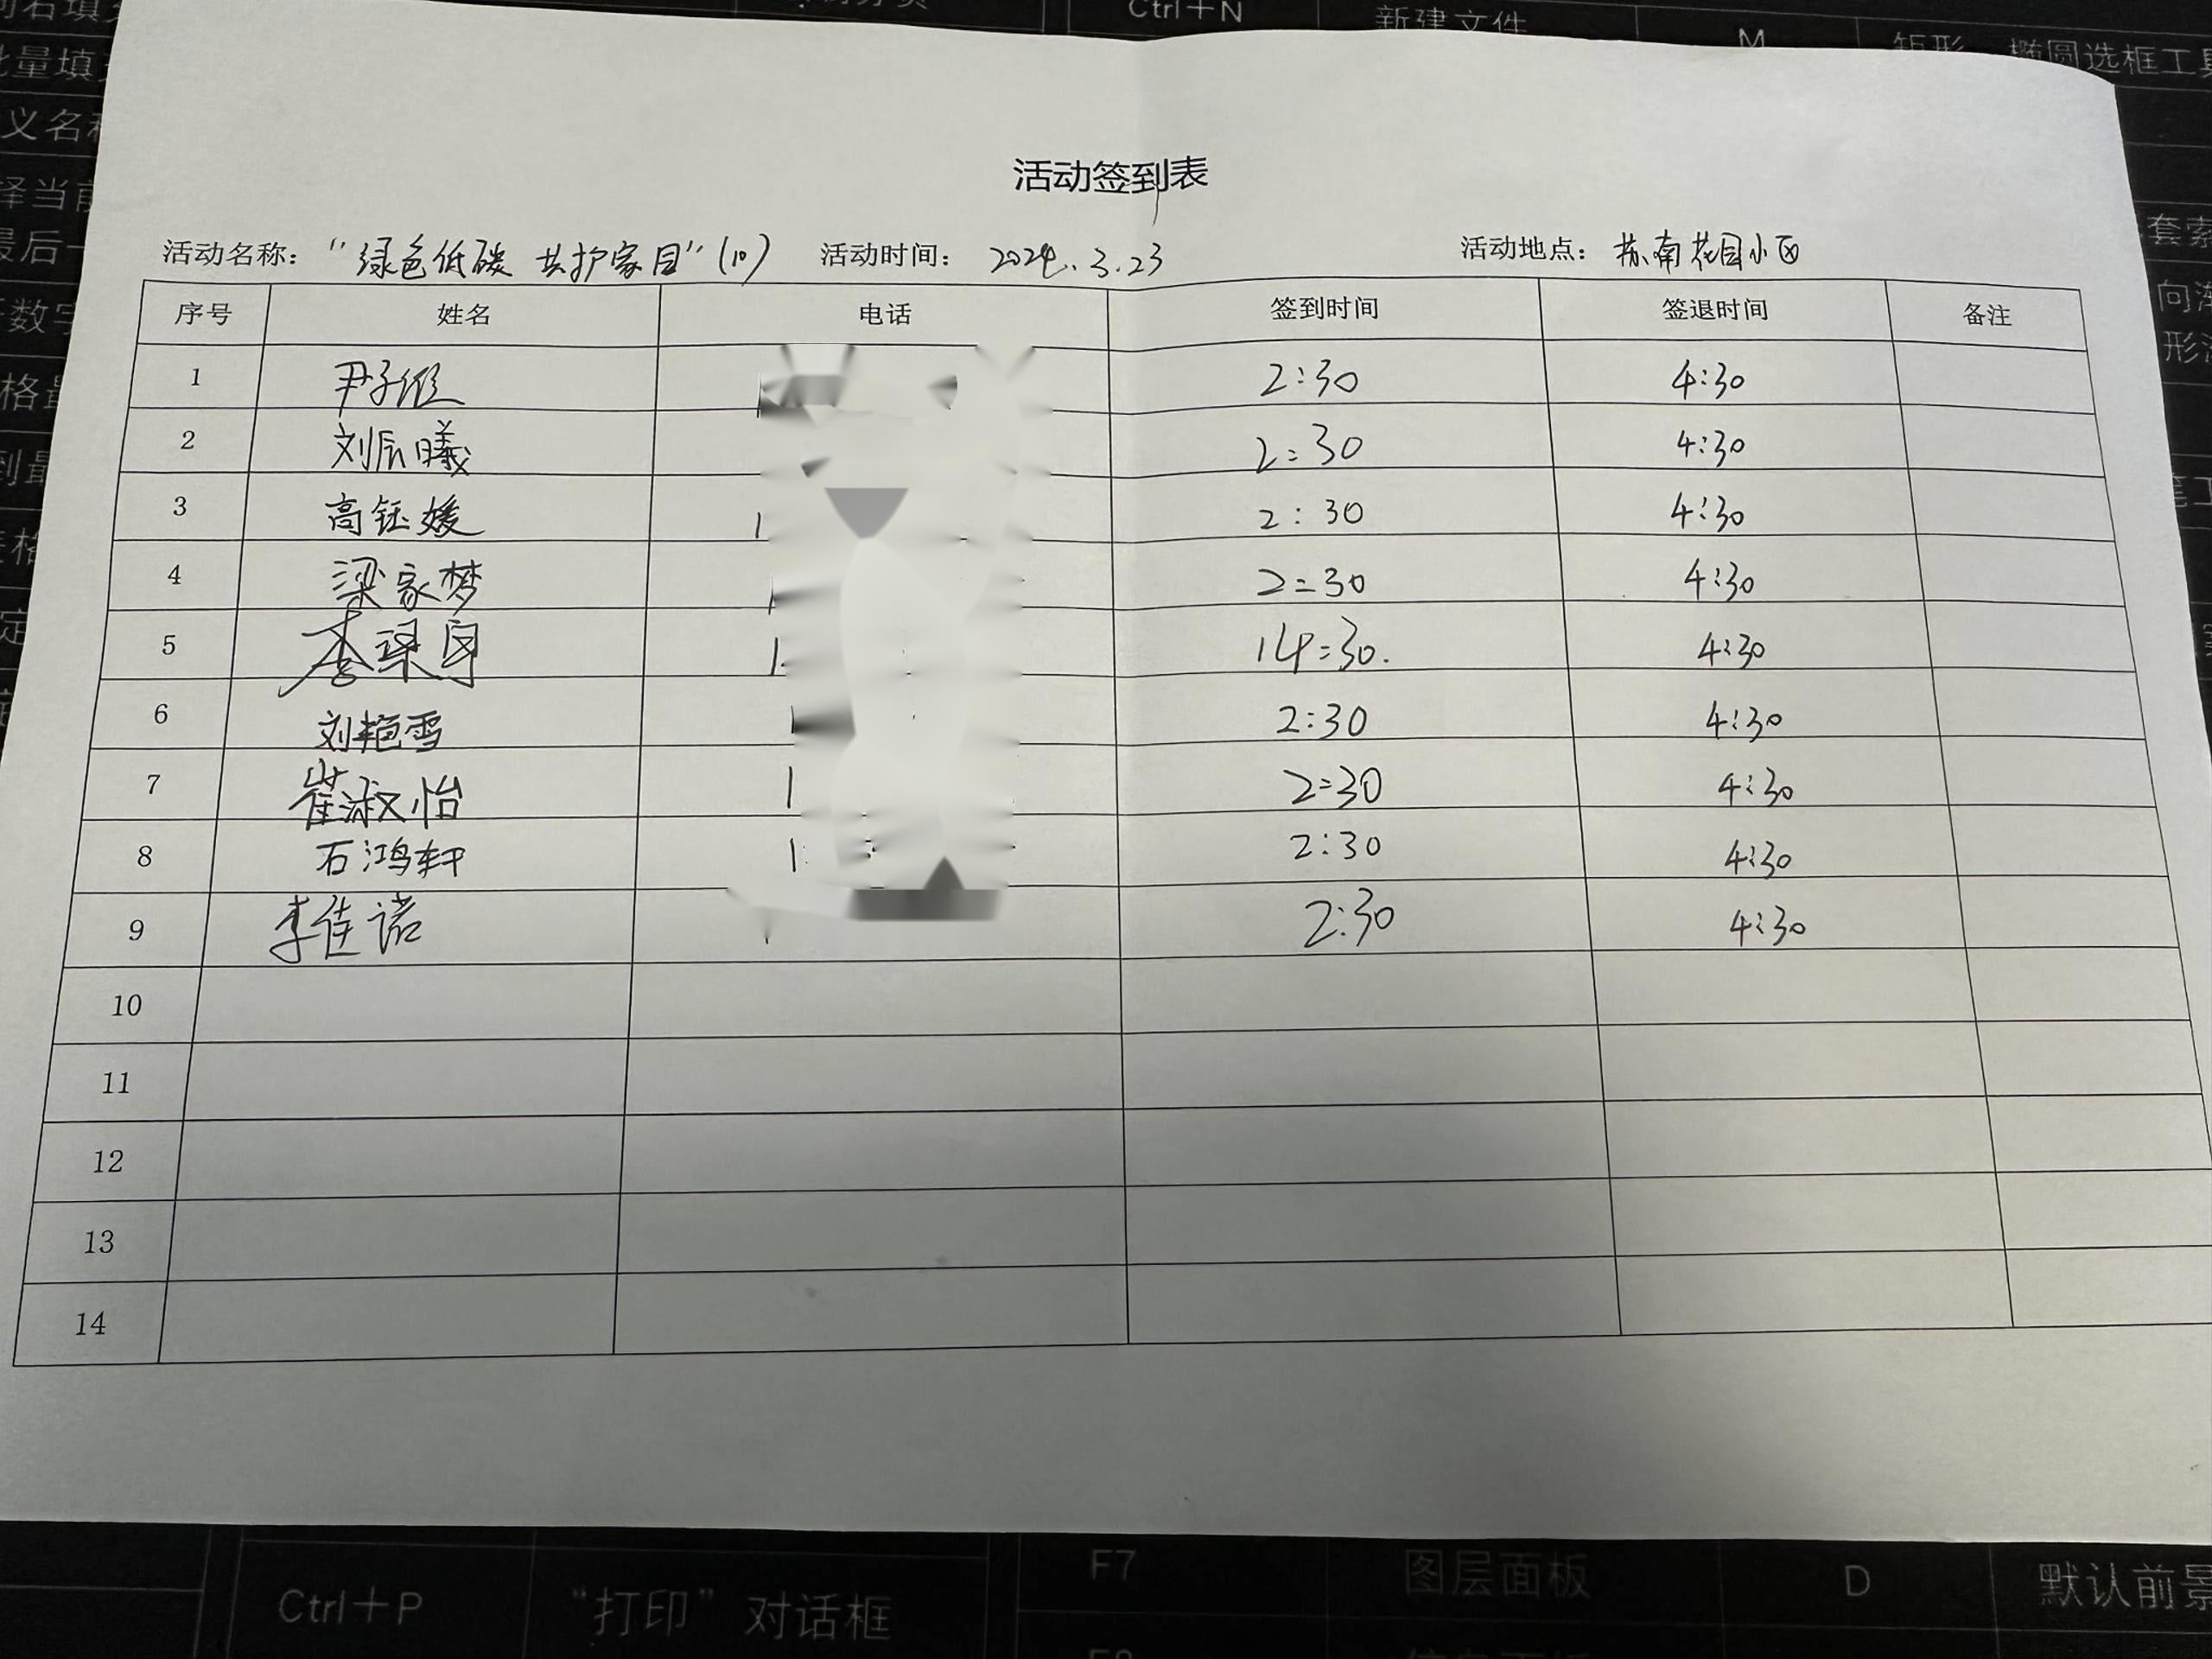 Ctrl+N
新建文件
M
矩形、椭圆选框工具
活动签到表
活动名称：“绿色低碳 共护家园”(10) 活动时间：2024.3.23 活动地点：苏南花园小区
序号 姓名 电话 签到时间 签退时间 备注
1 尹子 2:30 4:30
2 刘辰曦 2:30 4:30
3 高钰媛 1 2:30 4:30
4 梁家梦 2:30 4:30
5 李 1 14:30. 4:30
6 刘艳雪 2:30 4:30
7 崔淑怡 1 2:30 4:30
8 石鸿轩 1 2:30 4:30
9 李佳诺 2:30 4:30
10
11
12
13
14
Ctrl+P “打印”对话框 F7 图层面板 D 默认前景